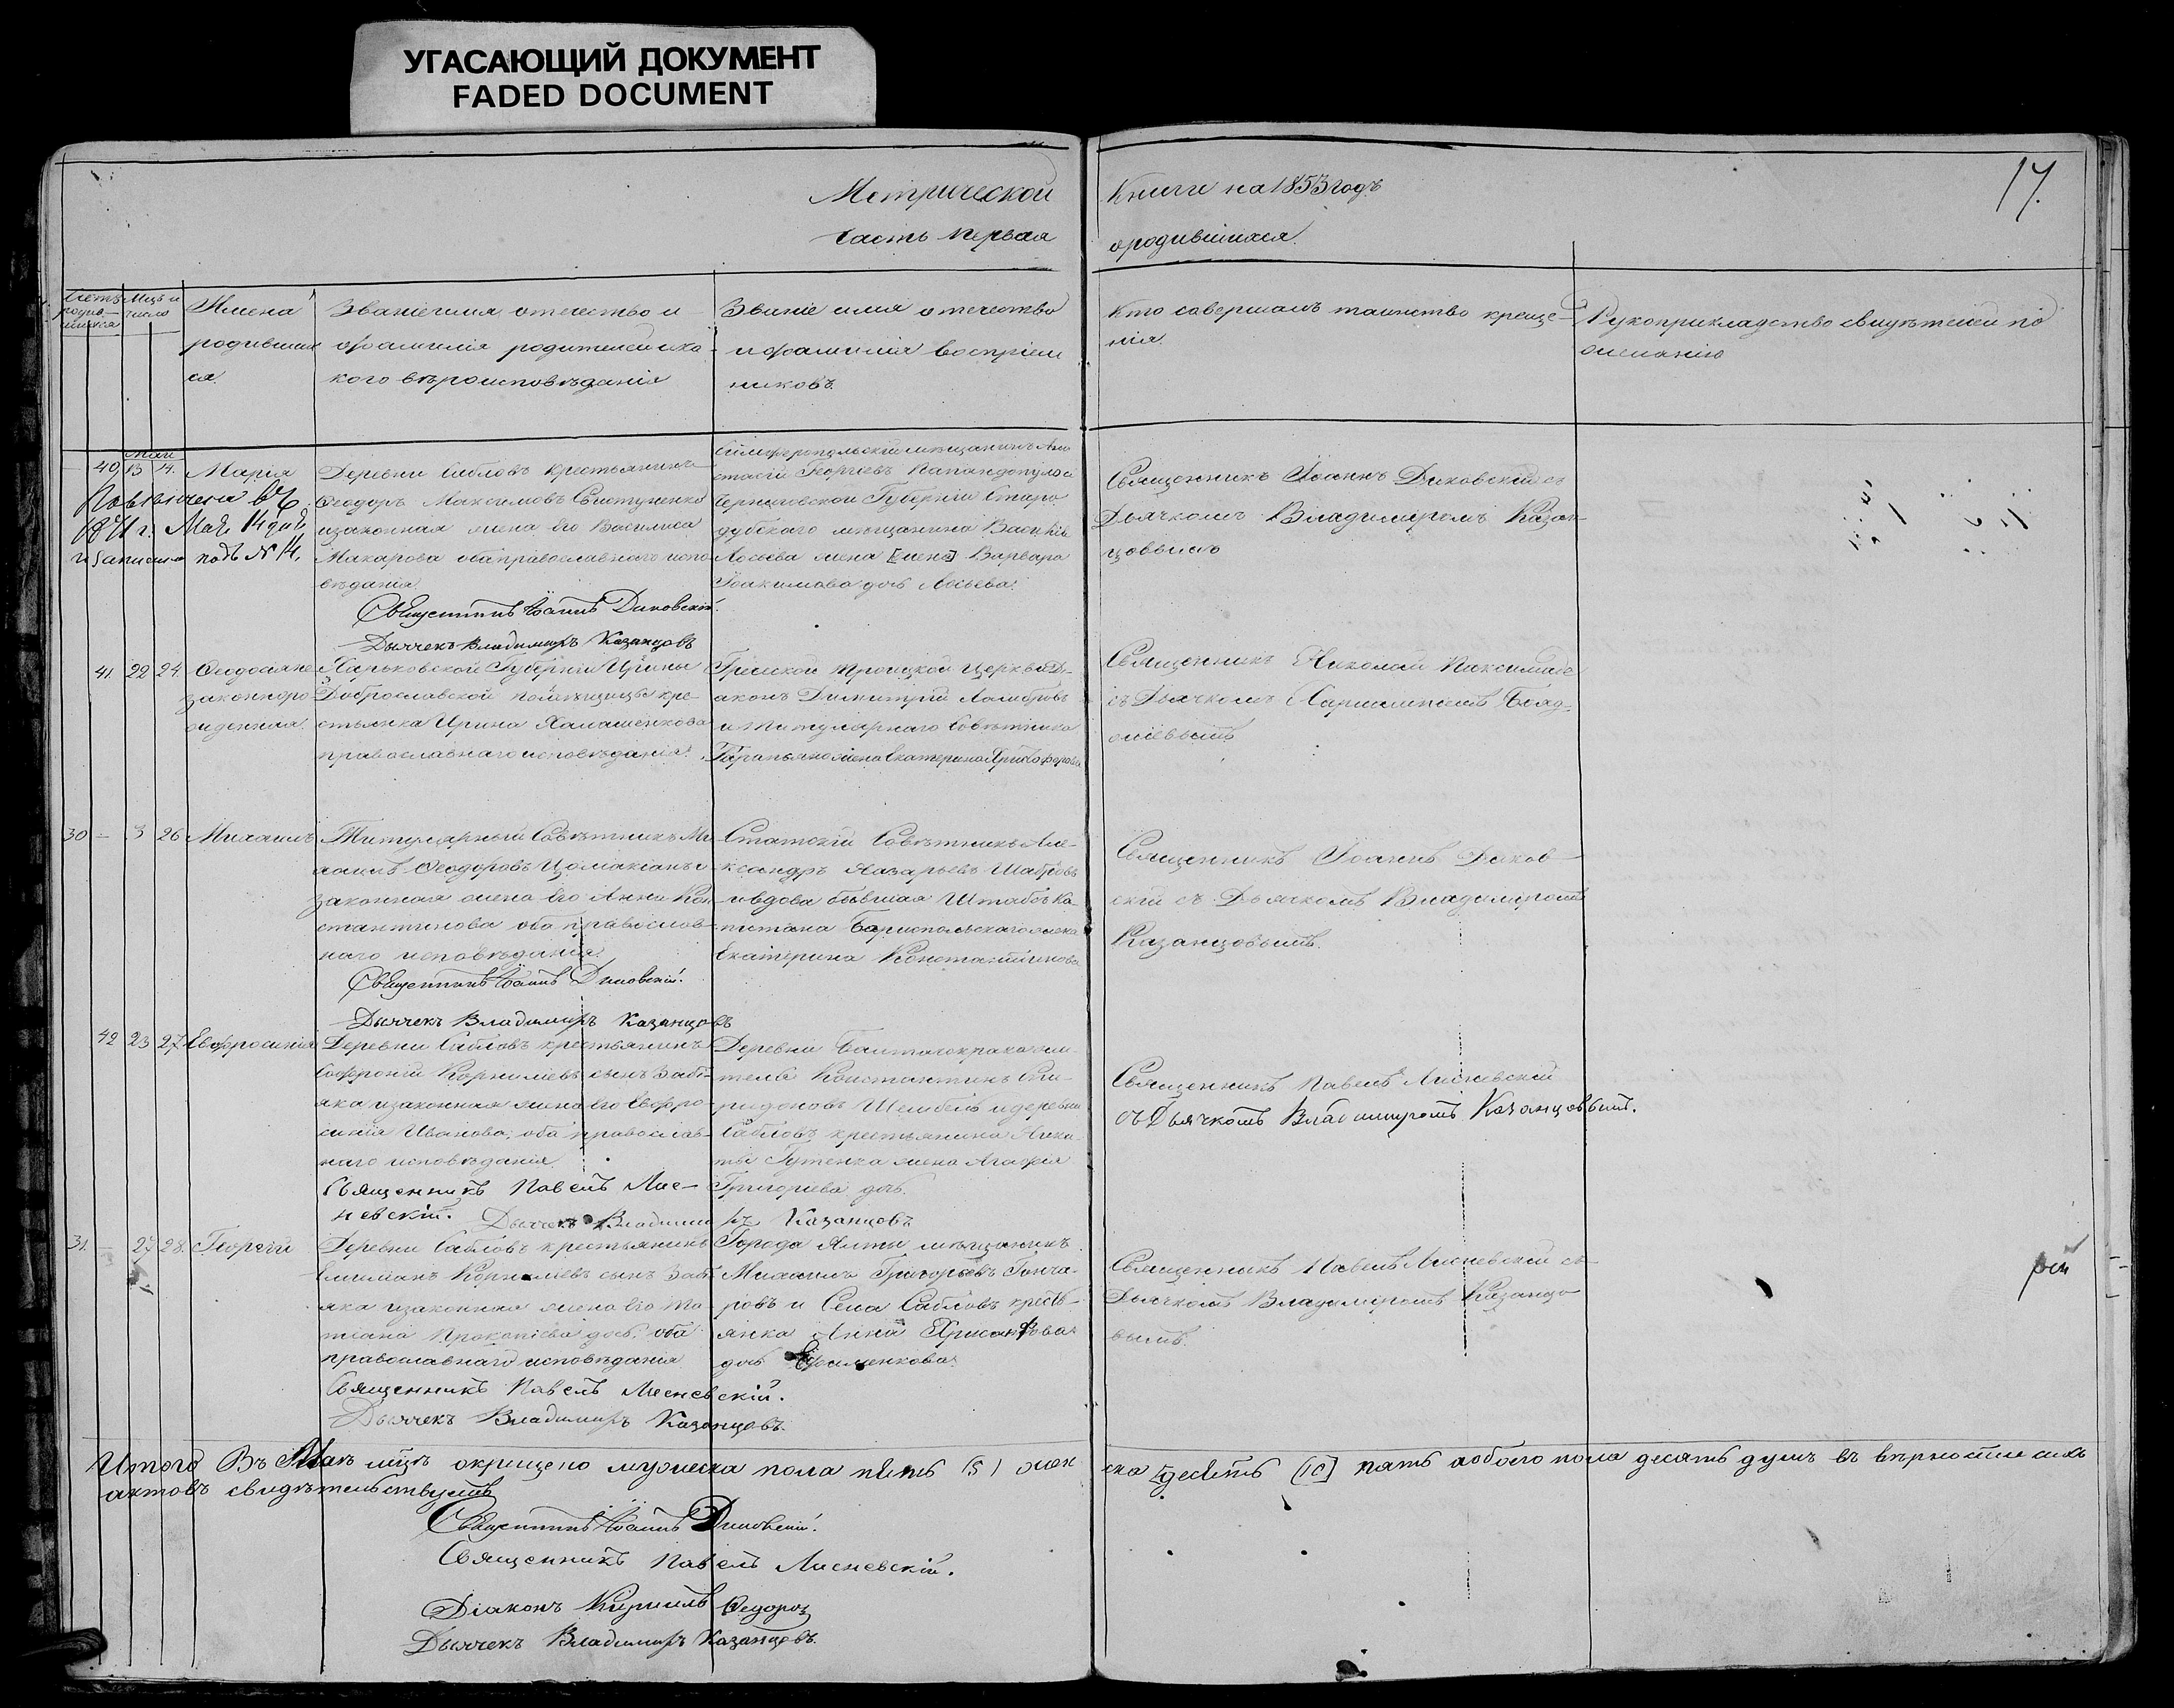 УГАСАЮЩИЙ ДОКУМЕНТ
FADED DOCUMENT
17.
Метрической Книги на 1853 годъ
часть первая о родившихся.
Счетъ родив-шихся
Мцъ и число
Имена родившихся.
Званіе имя отечество и фамилія родителей и какого вѣроисповѣданія
Званіе имя отечество и фамилія воспріемниковъ.
Кто совершалъ таинство крещенія.
Рукоприкладство свидѣтелей по желанію
Маи
40. 13 14. Марія
Деревни Сабловъ крестьянинъ
Ѳеодоръ Максимовъ
и законная жена его Василиса
Макарова оба православнаго испо-
вѣданія
Священникъ Іоаннъ Диковскій.
Дьячекъ Владимиръ Казанцовъ
Симферопольскій мѣщанинъ Ана
стасій Георгіевъ Папандопуло и
Черниговской Губерніи Старо
дубскаго мѣщанина
жена [жена] Варвара
Іоакимова дочь
Священникъ Іоаннъ Диковскій съ
Дьячкомъ Владиміромъ Казан-
цовымъ
Мая 14 дня
и записана подъ № 14.
41. 22 24. Ѳеодосія не
законноро
жденная.
Харьковской Губерніи
Доброславской помѣщицы кре-
стьянка Ирина
православнаго исповѣданія.
Греческой Троицкой Церкви Ді-
аконъ Димитрій
и Титулярнаго Совѣтника
жена Екатерина Христофорова
Священникъ Николай
съ Дьячкомъ
30 – 3 26 Михаилъ
Титулярный Совѣтникъ Ми
хаилъ Ѳеодоровъ и
законная жена его Анна Кон
стантинова оба православ-
наго исповѣданія.
Священникъ Іоаннъ Диковскій.
Дьячекъ Владимиръ Казанцовъ
Статскій Совѣтникъ Але-
ксандръ Назарьевъ
и вдова бывшая Штабсъ Ка
питана Бориспольскаго жена
Екатерина Константинова
Священникъ Іоаннъ Диков-
скій съ Дьячкомъ Владиміромъ
Казанцовымъ.
42 23 27. Евфросинія
Деревни Сабловъ крестьянинъ
Софроній Корниліевъ сынъ Забі-
яка и законная жена его Евфро
синія Иванова, оба православ-
наго исповѣданія
Священникъ Павелъ Лис-
невскій. Дьячекъ Владимиръ Казанцовъ
Деревни жи-
тель Константинъ Спи-
ридоновъ и деревни
Сабловъ крестьянина Ники
ты жена Агафія
Григорьева дочь.
Священникъ Павелъ Лисневскій
съ Дьячкомъ Владимиромъ Казанцовымъ.
31. – 27 28. Георгій
Деревни Сабловъ крестьянинъ
Корниліевъ сынъ Забі-
яка и законная жена его Та
тіана Прокопіева дочь, оба
православнаго исповѣданія
Священникъ Павелъ Лисневскій.
Дьячекъ Владимиръ Казанцовъ.
Города Ялты мѣщанинъ
Михаилъ Григорьевъ Гонча-
ровъ и Села Сабловъ кресть-
янка Анна Хрисанфова
дочь Ефименкова.
Священникъ Павелъ Лисневскій съ
Дьячкомъ Владиміромъ Казанцо
вымъ.
Итого Въ Маѣ мцѣ окрещено мужеска пола пять (5) жен ска [десять (10] пять а обоего пола десять душъ въ вѣрности сихъ
актовъ свидѣтельствуемъ
Священникъ Іоаннъ Диковскій.
Священникъ Павелъ Лисневскій.
Діаконъ Кириллъ Ѳедоров
Дьячекъ Владимиръ Казанцовъ.